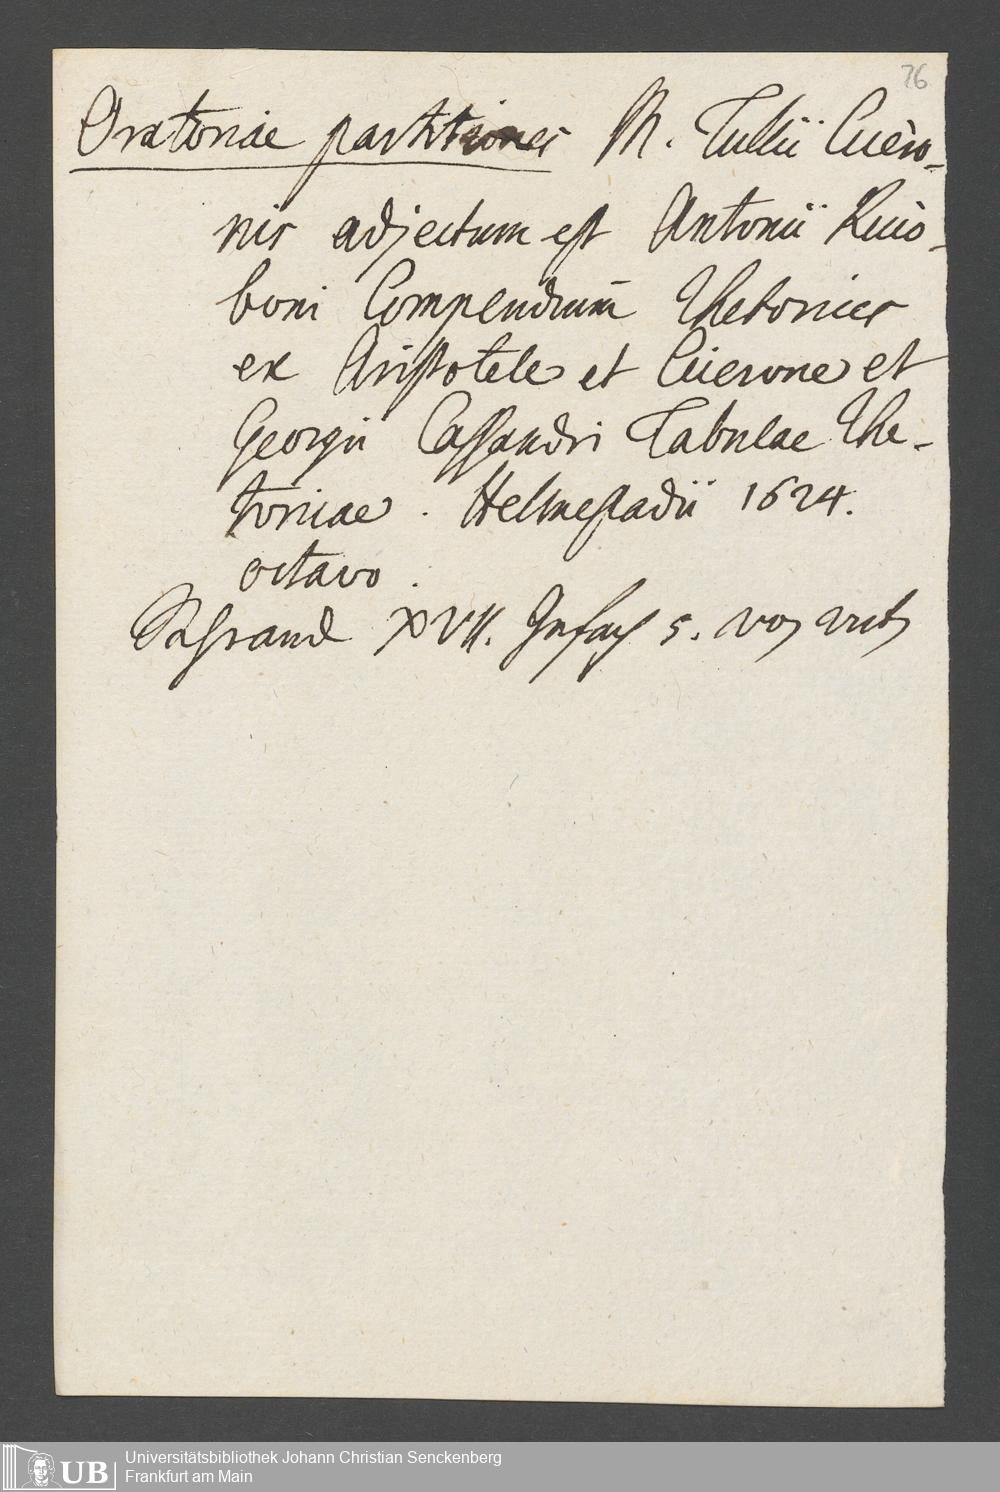 76
Oratoriae partitiones M. Tullii Cicero-
nis adjectum est Antonii Ricco-
boni Compendium Rhetorices
ex Aristotele et Cicerone et
Georgii Cassandri Tabulae Rhe-
toricae. Helmestadii 1624.
octavo.
Schrand XVII. Infach 5.
UB Universitätsbibliothek Johann Christian Senckenberg
Frankfurt am Main